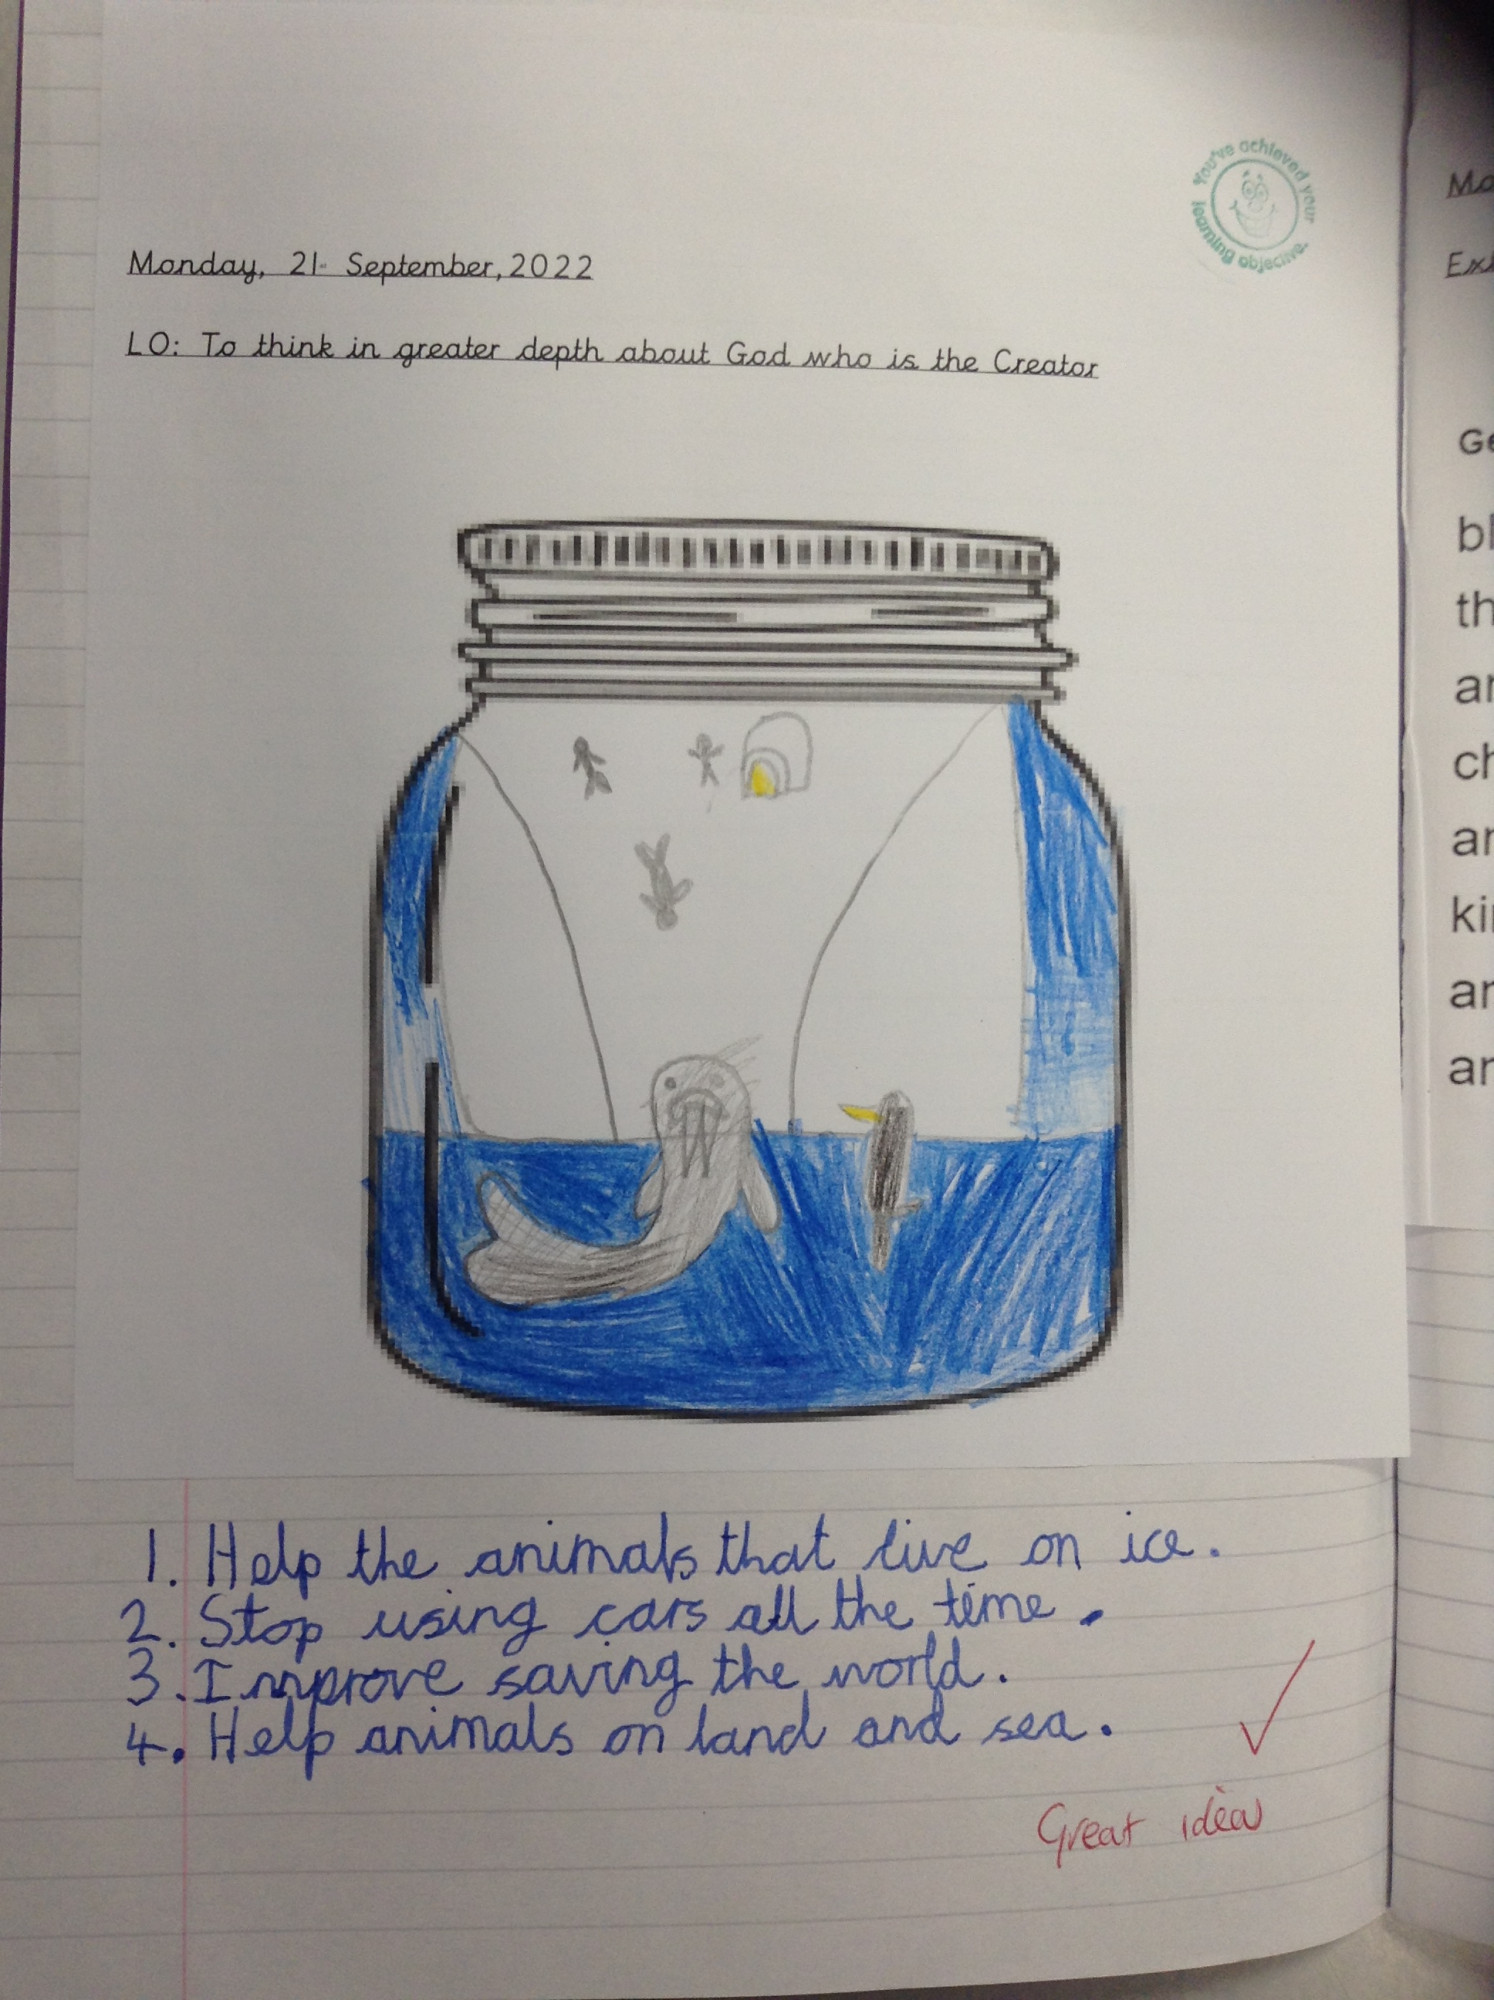 You've achieved your
learning objective.
Monday, 21 September, 2022
LO: To think in greater depth about God who is the Creator
1. Help the animals that live on ice.
2. Stop using cars all the time.
3. Improve saving the world.
4. Help animals on land and sea.
Great idea